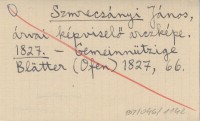 Szmrecsányi János,
árvai képviselő arczképe.
1827. – Gemeinnützige
Blätter (Ofen) 1827, 66.